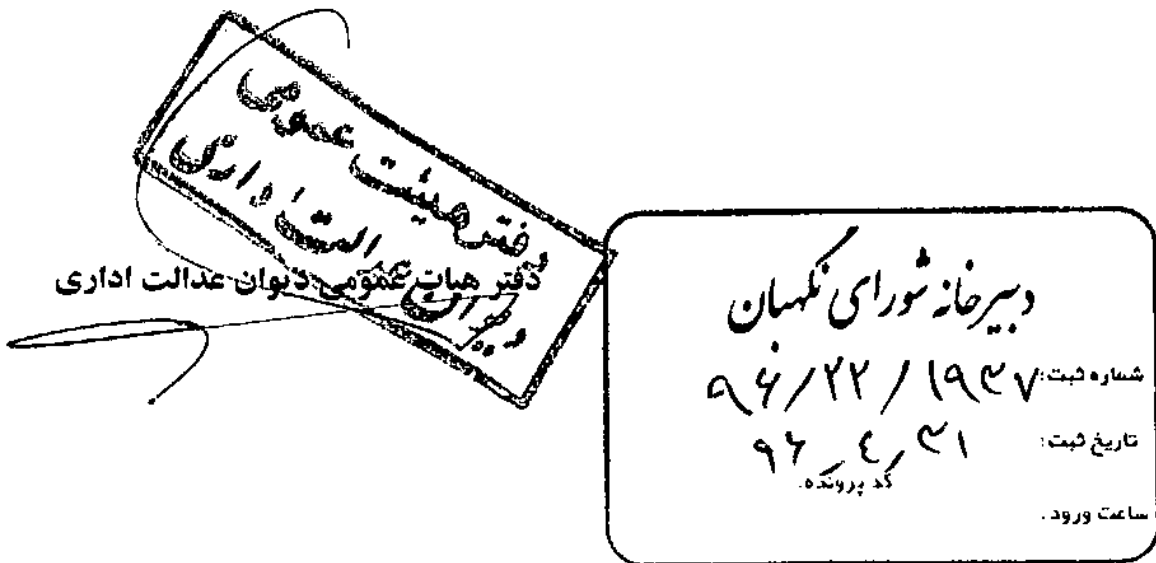 دفتر هیئت عمومی
دیوان عدالت اداری
دفتر هیات عمومی دیوان عدالت اداری
دبیرخانه شورای نگهبان
شماره ثبت: ۹۶/۲۲/۱۹۳۷
تاریخ ثبت: ۹۶,۴,۳۱
کد پرونده:
ساعت ورود: